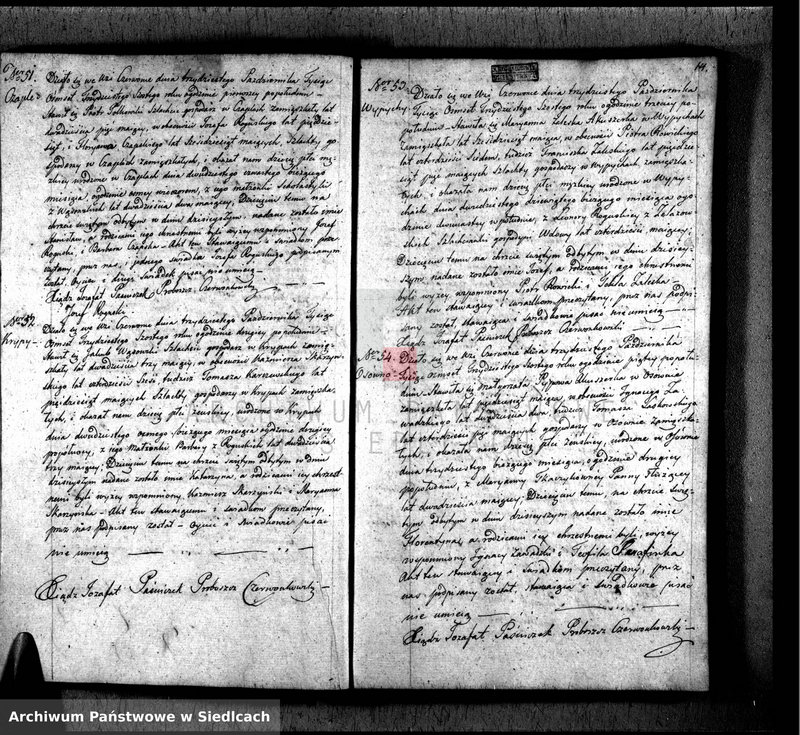 Nro 51.
Czaple
Działo się we Wsi Czerwonce dnia trzydziestego Października Tysiąc
Osmset Trzydziestego Szostego roku ogodzinie pierwszey popołudniu
Stawił się Piotr Szlachcic gospodarz w Czaplach zamięszkały lat
dwadzieścia pięć maiący, w obecności Jozefa Roguskiego lat pięćdzie-
siąt, i Czapskiego lat Sześćdziesiąt maiących, Szlachty go-
spodarzy w Czaplach zamięszkałych, i okazał nam dziecię płci mę-
zkiey urodzone w Czaplach dnia dwudziestego czwartego bieżącego
miesiąca ogodzinie z iego małżonki
lat dwadzieścia dwa maiącey, Dziecięciu temu na
chrzcie świętym odbytym w dniu dzisieyszym nadane zostało imie
Stanisław, a rodzicami iego chrzestnemi byli wyżey wspomniony Jozef
Roguski, i Barbara Czapska. Akt ten Stawaiącemu i świadkom prze-
czytany, przez nas, i jednego świadka Jozefa Roguskiego podpisanym
został, Oyciec i drugi świadek pisać nie umieią
Xiądz Jozafat Paśniczek Proboszcz Czerwonkowski
Jozef Roguski
Nro 52.
Krypy
Działo się we Wsi Czerwonce dnia trzydziestego Października Tysiąc
Osmset Trzydziestego Szostego roku ogodzinie drugiey popołudniu
Stawił się Jakub Wąsowski Szlachcic gospodarz w Krypach zamię-
szkały lat dwadzieścia trzy maiący, w obecności Kazmierza Skarzyn-
skiego lat czterdzieści Sześć tudzież Tomasza lat
pięćdziesiąt maiących Szlachty gospodarzy w Krypach zamięszka-
łych, i okazał nam dziecię płci żeńskiey, urodzone w Krypach
dnia dwudziestego osmego bieżącego miesiąca ogodzinie drugiey
popołnocy, z iego Małżonki Barbary z Roguskich lat dwadzieścia
trzy maiącey, Dziecięciu temu na chrzcie świętym odbytym w dniu
dzisieyszym nadane zostało imie Katarzyna, a rodzicami iey chrzest-
nemi byli wyżey wspomniony Kazmierz Skarzyński i Maryanna
Skarzyńska. Akt ten stawaiącemu i świadkom przeczytany,
przez nas podpisany został. Oyciec i świadkowie pisać
nie umieią
Xiądz Jozafat Paśniczek Proboszcz Czerwonkowski
Nro 53.
Wypychy
Działo się we Wsi Czerwonce dnia trzydziestego Października
Tysiąc Osmset Trzydziestego Szostego roku ogodzinie trzeciey po-
południu. Stawiła się Maryanna Zaleska Akuszerka w Wypychach
zamięszkała lat Sześćdziesiąt maiąca, w obecności Piotra
lat czterdzieści Siedm, tudzież Franciszka Zaleskiego lat pięćdzie-
siąt pięć maiących Szlachty gospodarzy w Wypychach zamięszka-
łych, i okazała nam dziecię płci męzkiey urodzone w Wypy-
chach dnia dwudziestego dziewiątego bieżącego miesiąca ogo-
dzinie dwunastey w południe, z Roguskiey z
Szlachcianki gospodyni Wdowy lat czterdzieści maiącey,
Dziecięciu temu na chrzcie świętym odbytym w dniu dzisiey-
szym nadane zostało imie Jozef, a rodzicami iego chrzestnemi
byli wyżey wspomniony Piotr i Tekla Zaleska
Akt ten stawaiącey i świadkom przeczytany, przez nas podpi-
sany został, stawaiąca i świadkowie pisać nie umieią
Xiądz Jozafat Paśniczek Proboszcz Czerwonkowski
Nro 54.
Osowno
Działo się we Wsi Czerwonce dnia trzydziestego Października
Tysiąc Osmset Trzydziestego Szostego roku ogodzinie piątey popołu-
dniu Stawiła się Małgorzata Akuszerka w Osownie
zamięszkała lat pięćdziesiąt maiąca, w obecności Ignacego Za-
wadzkiego lat dwadzieścia dwa, tudzież Tomasza
lat czterdzieści pięć maiących gospodarzy w Osownie zamięszka-
łych, i okazała nam dziecię płci żeńskiey, urodzone w Osownie
dnia trzydziestego bieżącego miesiąca, ogodzinie drugiey
popołudniu, z Maryanny Panny Służącey
lat dwadzieścia maiącey, Dziecięciu temu, na chrzcie świę-
tym odbytym w dniu dzisieyszym nadane zostało imie
Florentyna, a rodzicami iey chrzestnemi byli, wyżey
wspomniony Ignacy Zawadzki i Teofila Parafinka
Akt ten stawaiącey i świadkom przeczytany, przez
nas podpisany został, stawaiąca i świadkowie pisać
nie umieią
Xiądz Jozafat Paśniczek Proboszcz Czerwonkowski
Archiwum Państwowe w Siedlcach